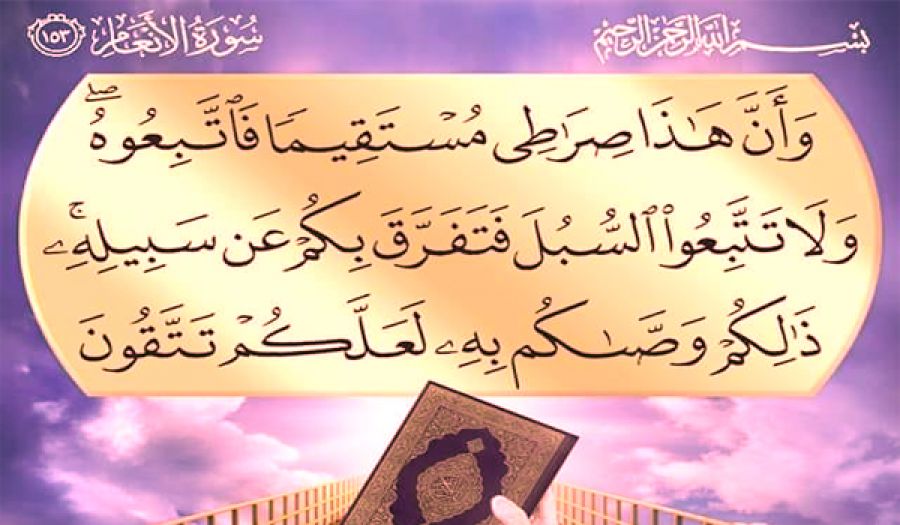 بِسْمِ ٱللَّهِ ٱلرَّحْمَٰنِ ٱلرَّحِيمِ
سُورَةُ الأَنْعَامِ ١٥٣
وَأَنَّ هَٰذَا صِرَٰطِى مُسْتَقِيمًا فَٱتَّبِعُوهُ ۖ
وَلَا تَتَّبِعُوا۟ ٱلسُّبُلَ فَتَفَرَّقَ بِكُمْ عَن سَبِيلِهِۦ ۚ
ذَٰلِكُمْ وَصَّىٰكُم بِهِۦ لَعَلَّكُمْ تَتَّقُونَ